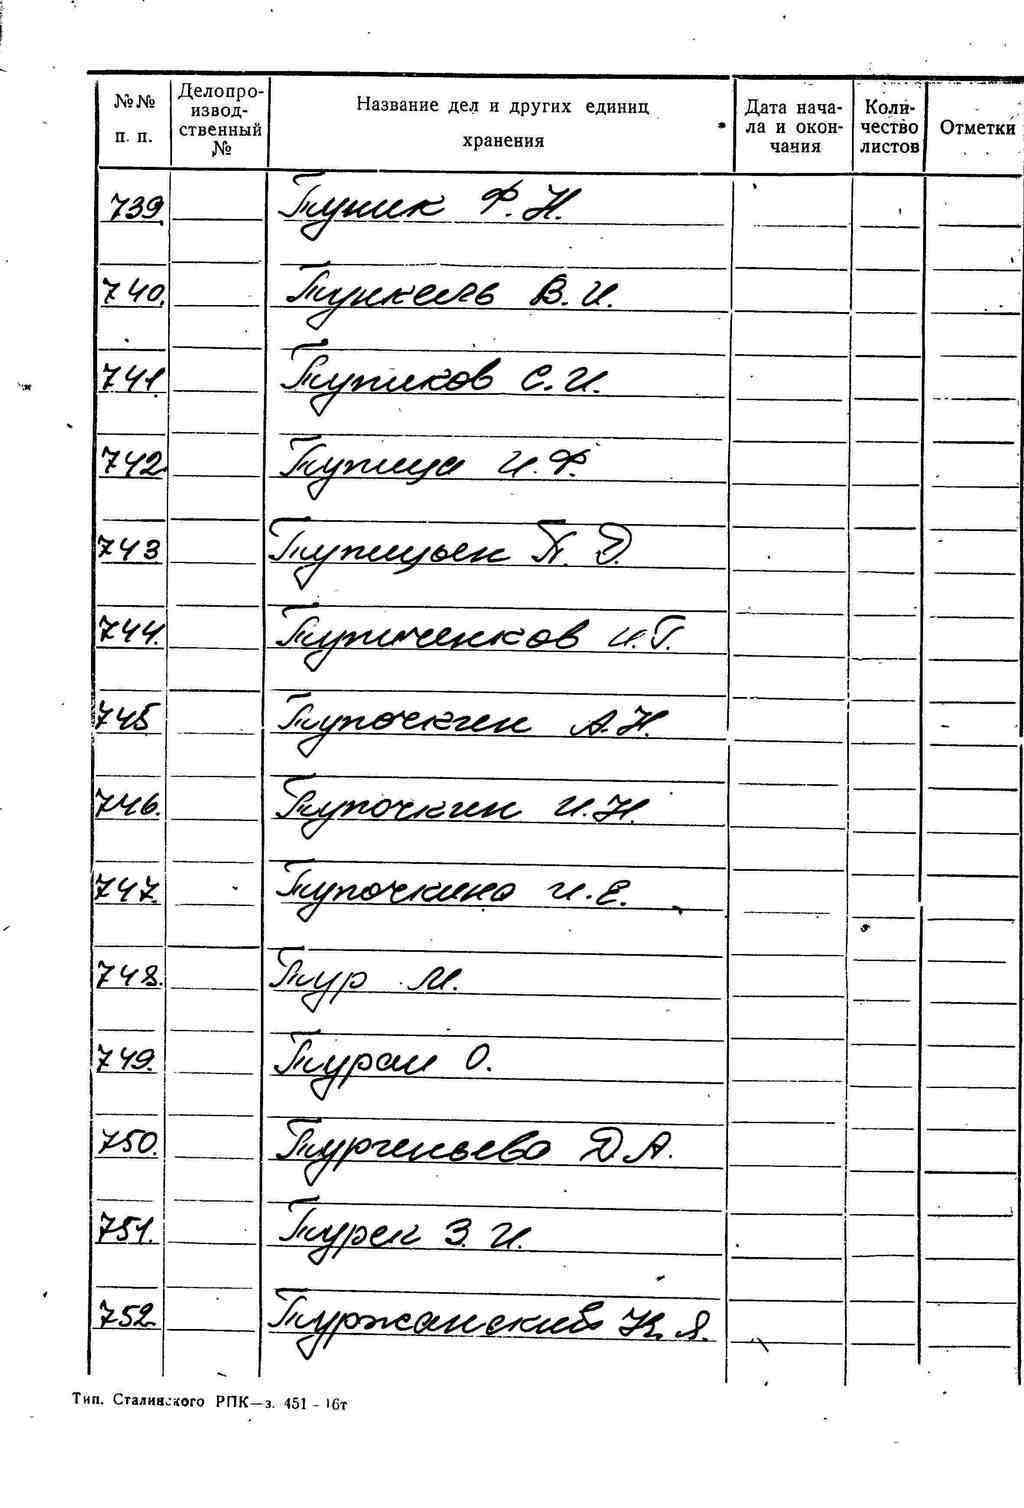 №№ п. п. Делопроизвод- ственный № Название дел и других единиц хранения Дата нача- ла и окон- чания Коли- чество листов Отметки
739. Тупик Ф. Н.
740. Тункель В. И.
741. Тупиков С. И.
742. Тупица И. Ф.
743 Тупицын П. Д.
744. Тупиченков И. Г.
745 Тупочкин А. Н.
746. Тупочкин И. Н.
747. Тупочкина И. Е.
748. Тур М.
749. Туран О.
750. Тургеньева Д. А.
751. Турек З. И.
752. Туржанский К. Я.
Тип. Сталинского РПК—з. 451 - 16т